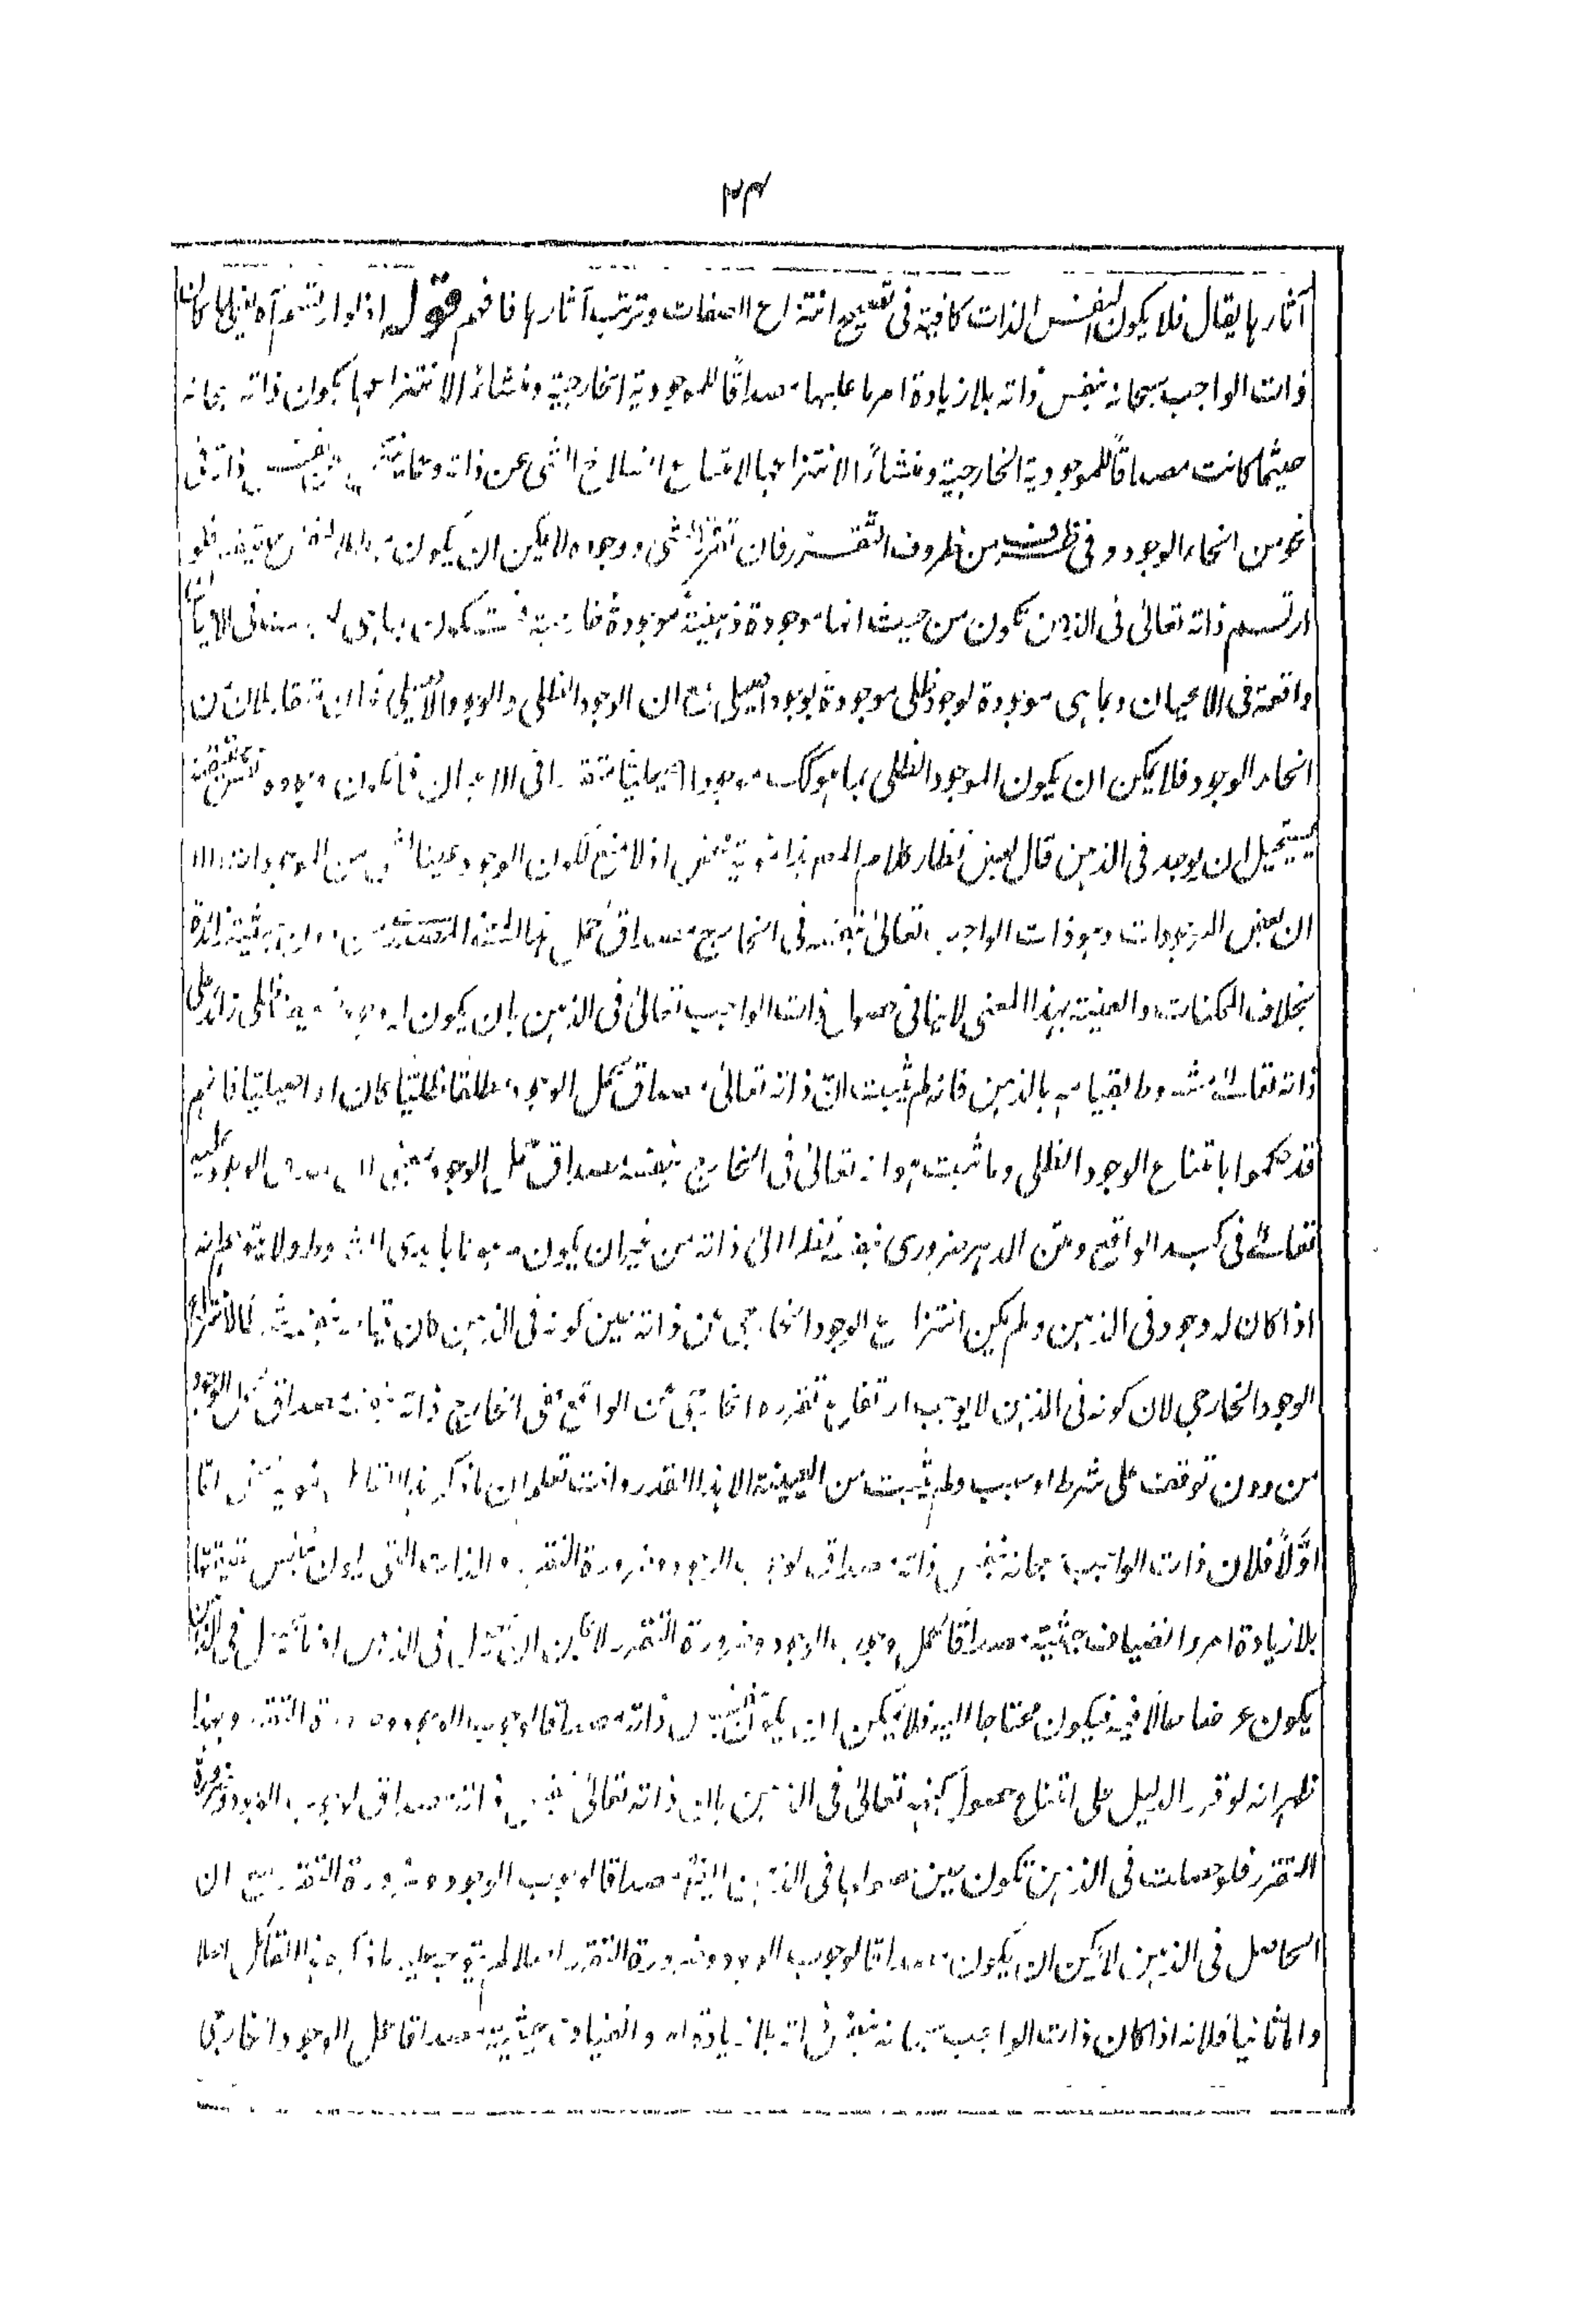 ٢٣
آثارها يقال فلا يكون لنفس الذات كافية فى تصحيح انتزاع الصفات وترتب آثارها فافهم قوله اذ لو ارتسم آه يعنى لما كان
ذات الواجب سبحانه بنفس ذاته بلا زيادة امر ما عليها مصداقًا للموجودية الخارجية ومنشأ لانتزاعها يكون ذاته سبحانه
حيثما كانت مصداقًا للموجودية الخارجية ومنشأ لانتزاعها لامتناع انسلاخ الشئ عن ذاته ذاته فى
نحو من انحاء الوجود وفى ظرف من ظروف التقرر فان تقرر الشئ ووجوده لا يمكن ان يكون فلو
ارتسم ذاته تعالى فى الذهن تكون من حيث انها موجودة ذهنية موجودة خارجية فتكون بما هى فى الاذهان
واقعة فى الاعيان وبما هى موجودة لوجود ظلى موجودة لوجود اصيلى مع ان الوجود الظلى والوجود الاصيلى متقابلان من
انحاء الوجود فلا يمكن ان يكون الموجود الظلى بما هو كك موجودا اصيليا فى الاعيان فما يكون وجوده
يستحيل ان يوجد فى الذهن قال بعض نظار كلام المص هذا اذ لا معنى لكون الوجود عينا لشئ من الموجودات الا
ان بعض الموجودات وهو ذات الواجب تعالى بنفسه فى الخارج مصداق حمل زائدة
بخلاف الممكنات والعينية بهذا المعنى لا ينافى حصول ذات الواجب تعالى فى الذهن بان يكون له وجود ظلى زائد على
ذاته تعالى مشروط بقيامه بالذهن فانه لم يثبت ان ذاته تعالى مصداق حمل الوجود مطلقا ظليا كان او اصيليا فانهم
قد حكموا بامتناع الوجود الظلى وما ثبت هو انه تعالى فى الخارج بنفسه مصداق حمل الوجود بمعنى ان الوجود عليه
تعالى فى كبد الواقع ومتن الدهر ضرورى بنفسه نظرا الى ذاته من غير ان يكون مرهونا بايدى الشروط ولا يتوهم انه
اذا كان له وجود فى الذهن ولم يكن انتزاع الوجود الخارجى عن ذاته حين كونه فى الذهن كان لانتزاع
الوجود الخارجى لان كونه فى الذهن لا يوجب ارتفاع تقرره الخارجى عن الواقع ففى الخارج ذاته بنفسه مصداق حمل الوجود
من دون توقف على شرط او سبب ولم يثبت من العينية الا هذا القدر وانت تعلم ان ما ذكر هذا القائل اما
اوّلًا فلان ذات الواجب سبحانه بنفس ذاته مصداق لوجوب الوجود وضرورة التقرر والذات التى يكون بنفس
بلا زيادة امر وانضياف حيثية مصداقًا لحمل وجوب الوجود وضرورة التقرر لا يمكن ان تحصل فى الذهن اذ ما يحصل فى الذهن
يكون عرضا حالا فيه فيكون محتاجا اليه فلا يمكن ان يكون بنفس ذاته مصداقا لوجوب الوجود وضرورة التقرر وبهذا
ظهر انه لو قرر الدليل على امتناع حصول كنهه تعالى فى الذهن بان ذاته تعالى بنفس ذاته مصداق لوجوب الوجود وضرورة
التقرر فلو حصلت فى الذهن تكون حين حصولها فى الذهن ايضًا مصداقا لوجوب الوجود وضرورة التقرر مع ان
الحاصل فى الذهن لا يمكن ان يكون مصداقا لوجوب الوجود وضرورة التقرر اصلا لم يتوجه عليه ما ذكره هذا القائل اصلا
واما ثانيا فلانه اذا كان ذات الواجب سبحانه بنفس ذاته بلا زيادة امر وانضياف حيثية مصداقا لحمل الوجود الخارجى